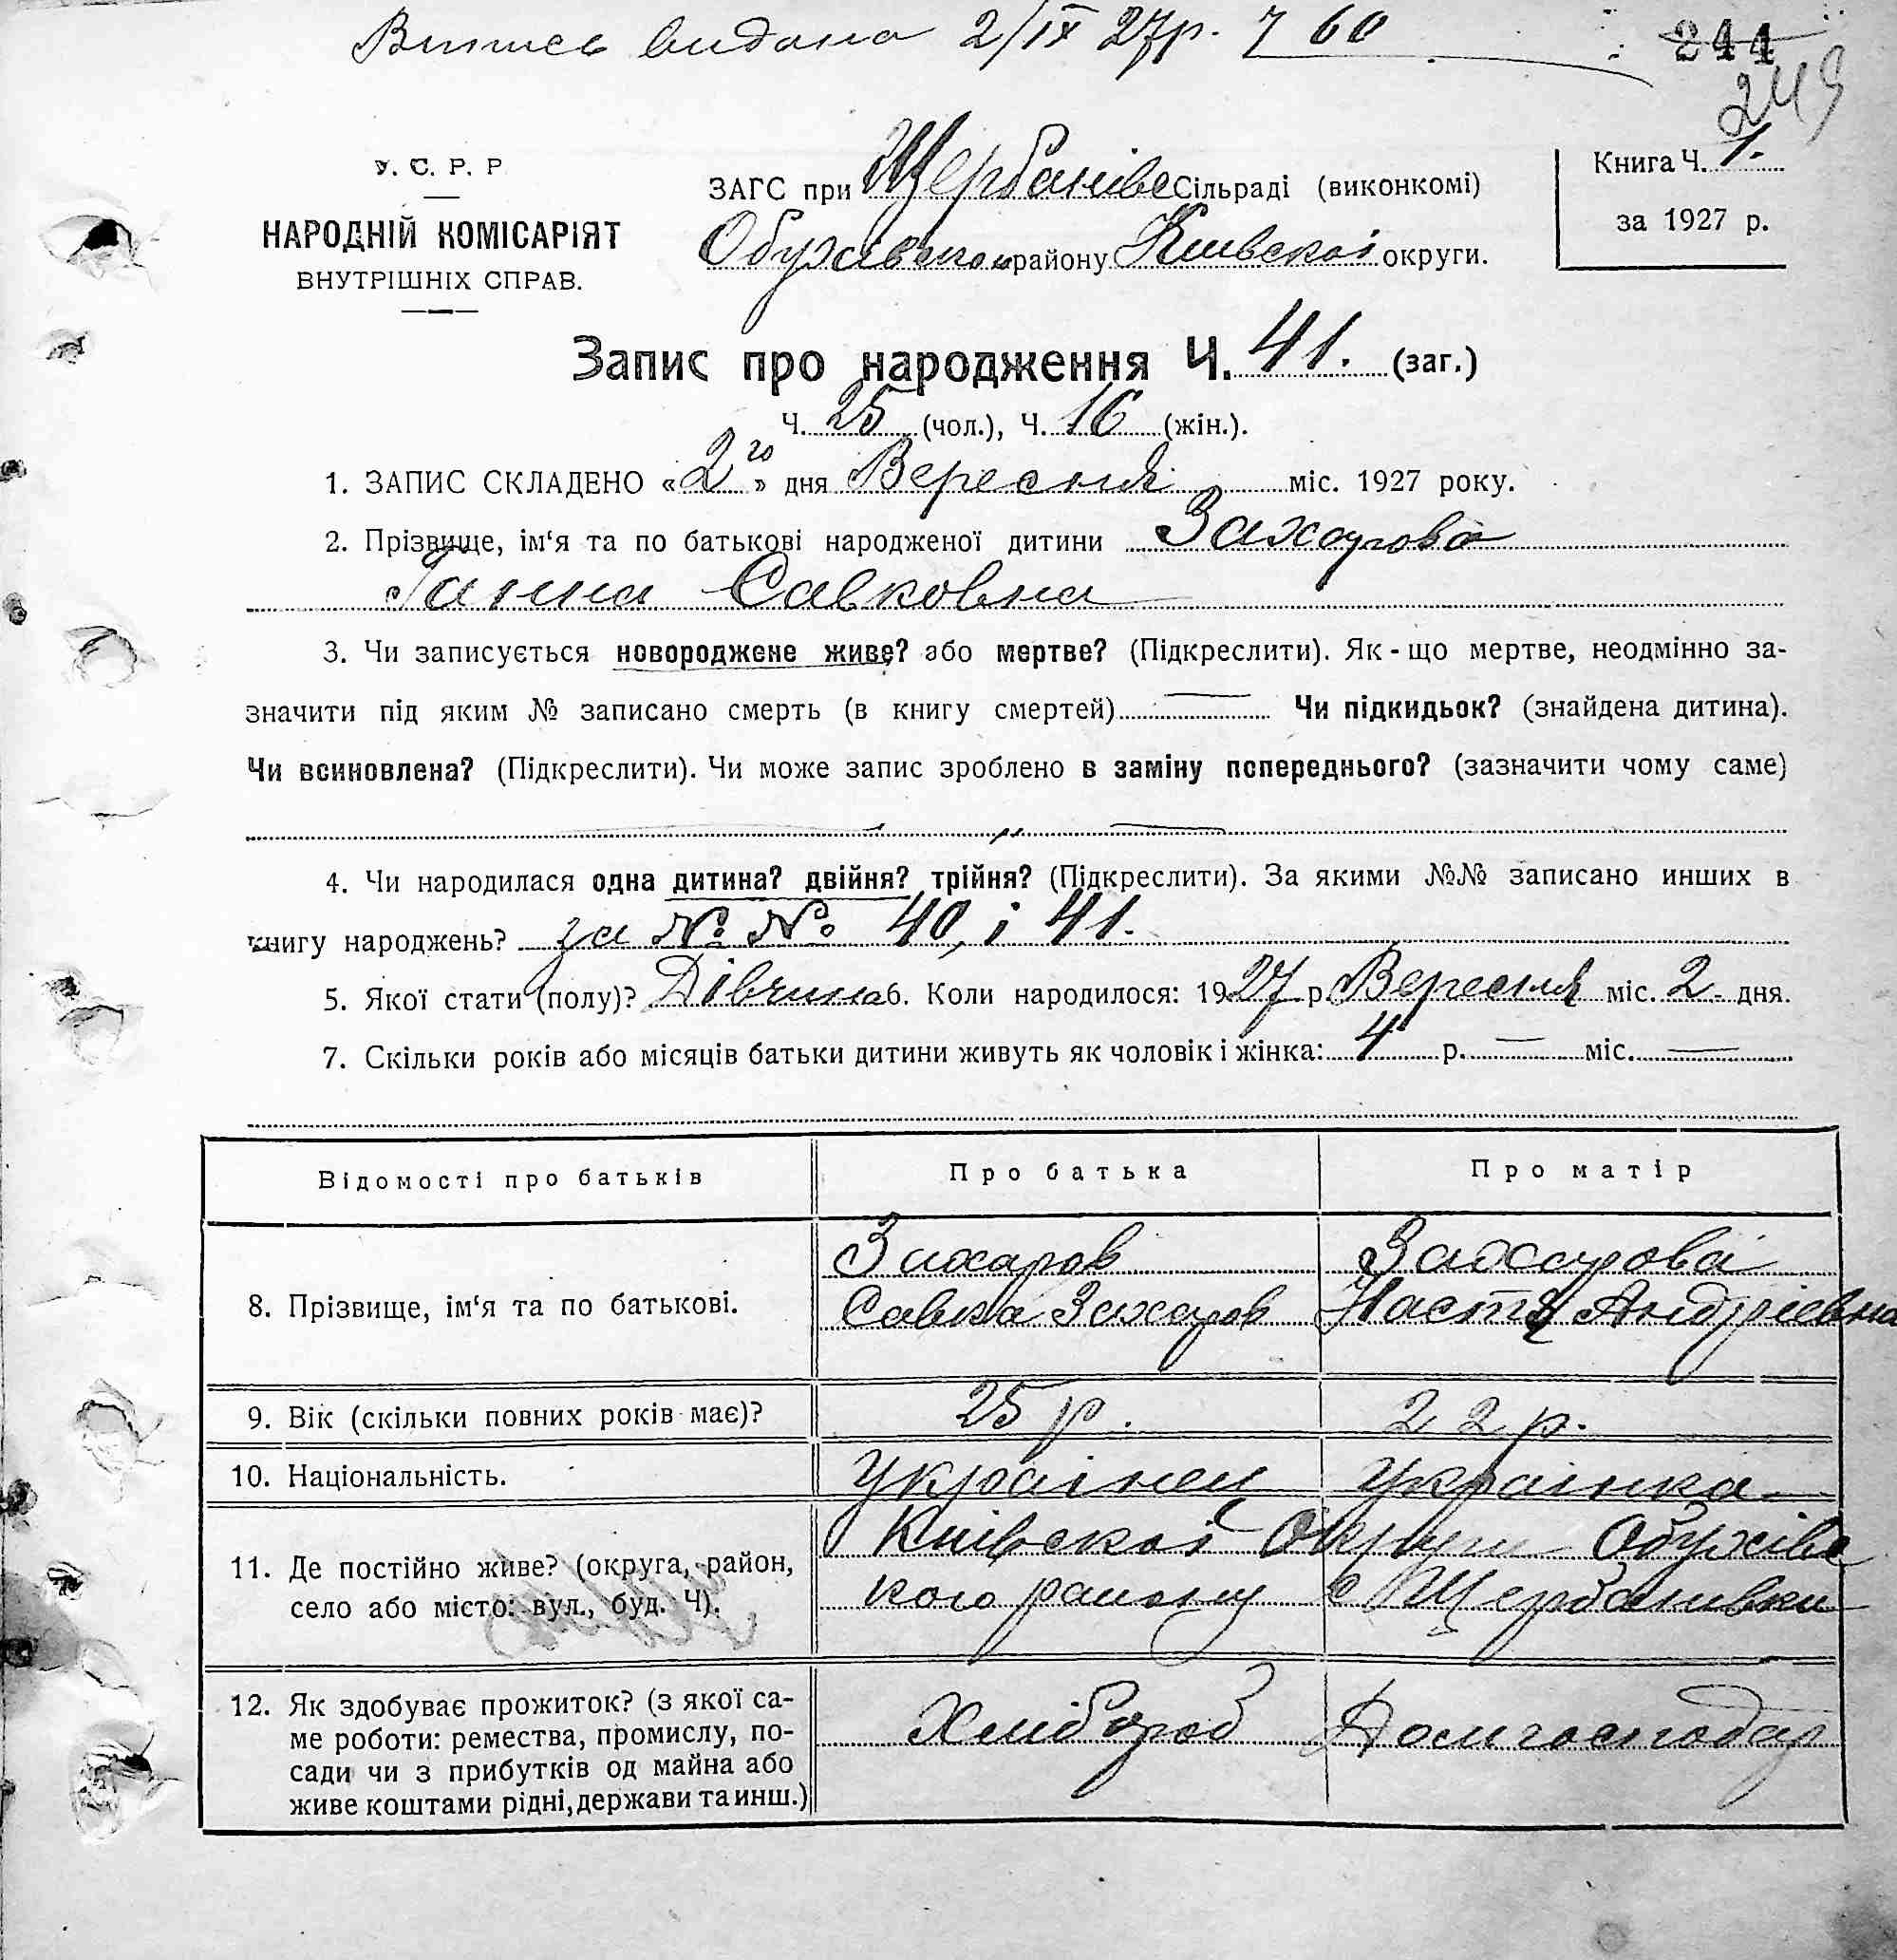 Випись видана 2/IX 27р. 7 60
244
249
У. С. Р. Р
НАРОДНІЙ КОМІСАРІЯТ
ВНУТРІШНІХ СПРАВ.
ЗАГС при Щербанівс Сільраді (виконкомі)
Обухівсько району Київскоі округи.
Книга Ч. 1.
за 1927 р.
Запис про народження Ч. 41. (заг.)
Ч. 25 (чол.), Ч. 16 (жін.).
1. ЗАПИС СКЛАДЕНО «2го» дня Вересня міс. 1927 року.
2. Прізвище, ім‘я та по батькові народженої дитини Захарова
Ганна Савковна
3. Чи записується новороджене живе? або мертве? (Підкреслити). Як - що мертве, неодмінно за-
значити під яким № записано смерть (в книгу смертей) — Чи підкидьок? (знайдена дитина).
Чи всиновлена? (Підкреслити). Чи може запис зроблено в заміну попереднього? (зазначити чому саме)
— „ —
4. Чи народилася одна дитина? двійня? трійня? (Підкреслити). За якими №№ записано инших в
книгу народжень? за №№ 40, і 41.
5. Якої стати (полу)? Дівчина 6. Коли народилося: 1927 р. Вересня міс. 2 - дня.
7. Скільки років або місяців батьки дитини живуть як чоловік і жінка: 4 р. — міс. —
Відомості про батьків Про батька Про матір
Захаров Захарова
8. Прізвище, ім‘я та по батькові. Савка Захаров Настя Андріевна
9. Вік (скільки повних років має)? 25 р. 22 р.
10. Національність. Украінец Украінка
11. Де постійно живе? (округа, район,
село або місто: вул., буд. Ч).
Київскоі Округи Обухівс
кого району с Щербанивки
12. Як здобуває прожиток? (з якої са-
ме роботи: ремества, промислу, по-
сади чи з прибутків од майна або
живе коштами рідні, держави та инш.)
Хлибороб Домгосподар